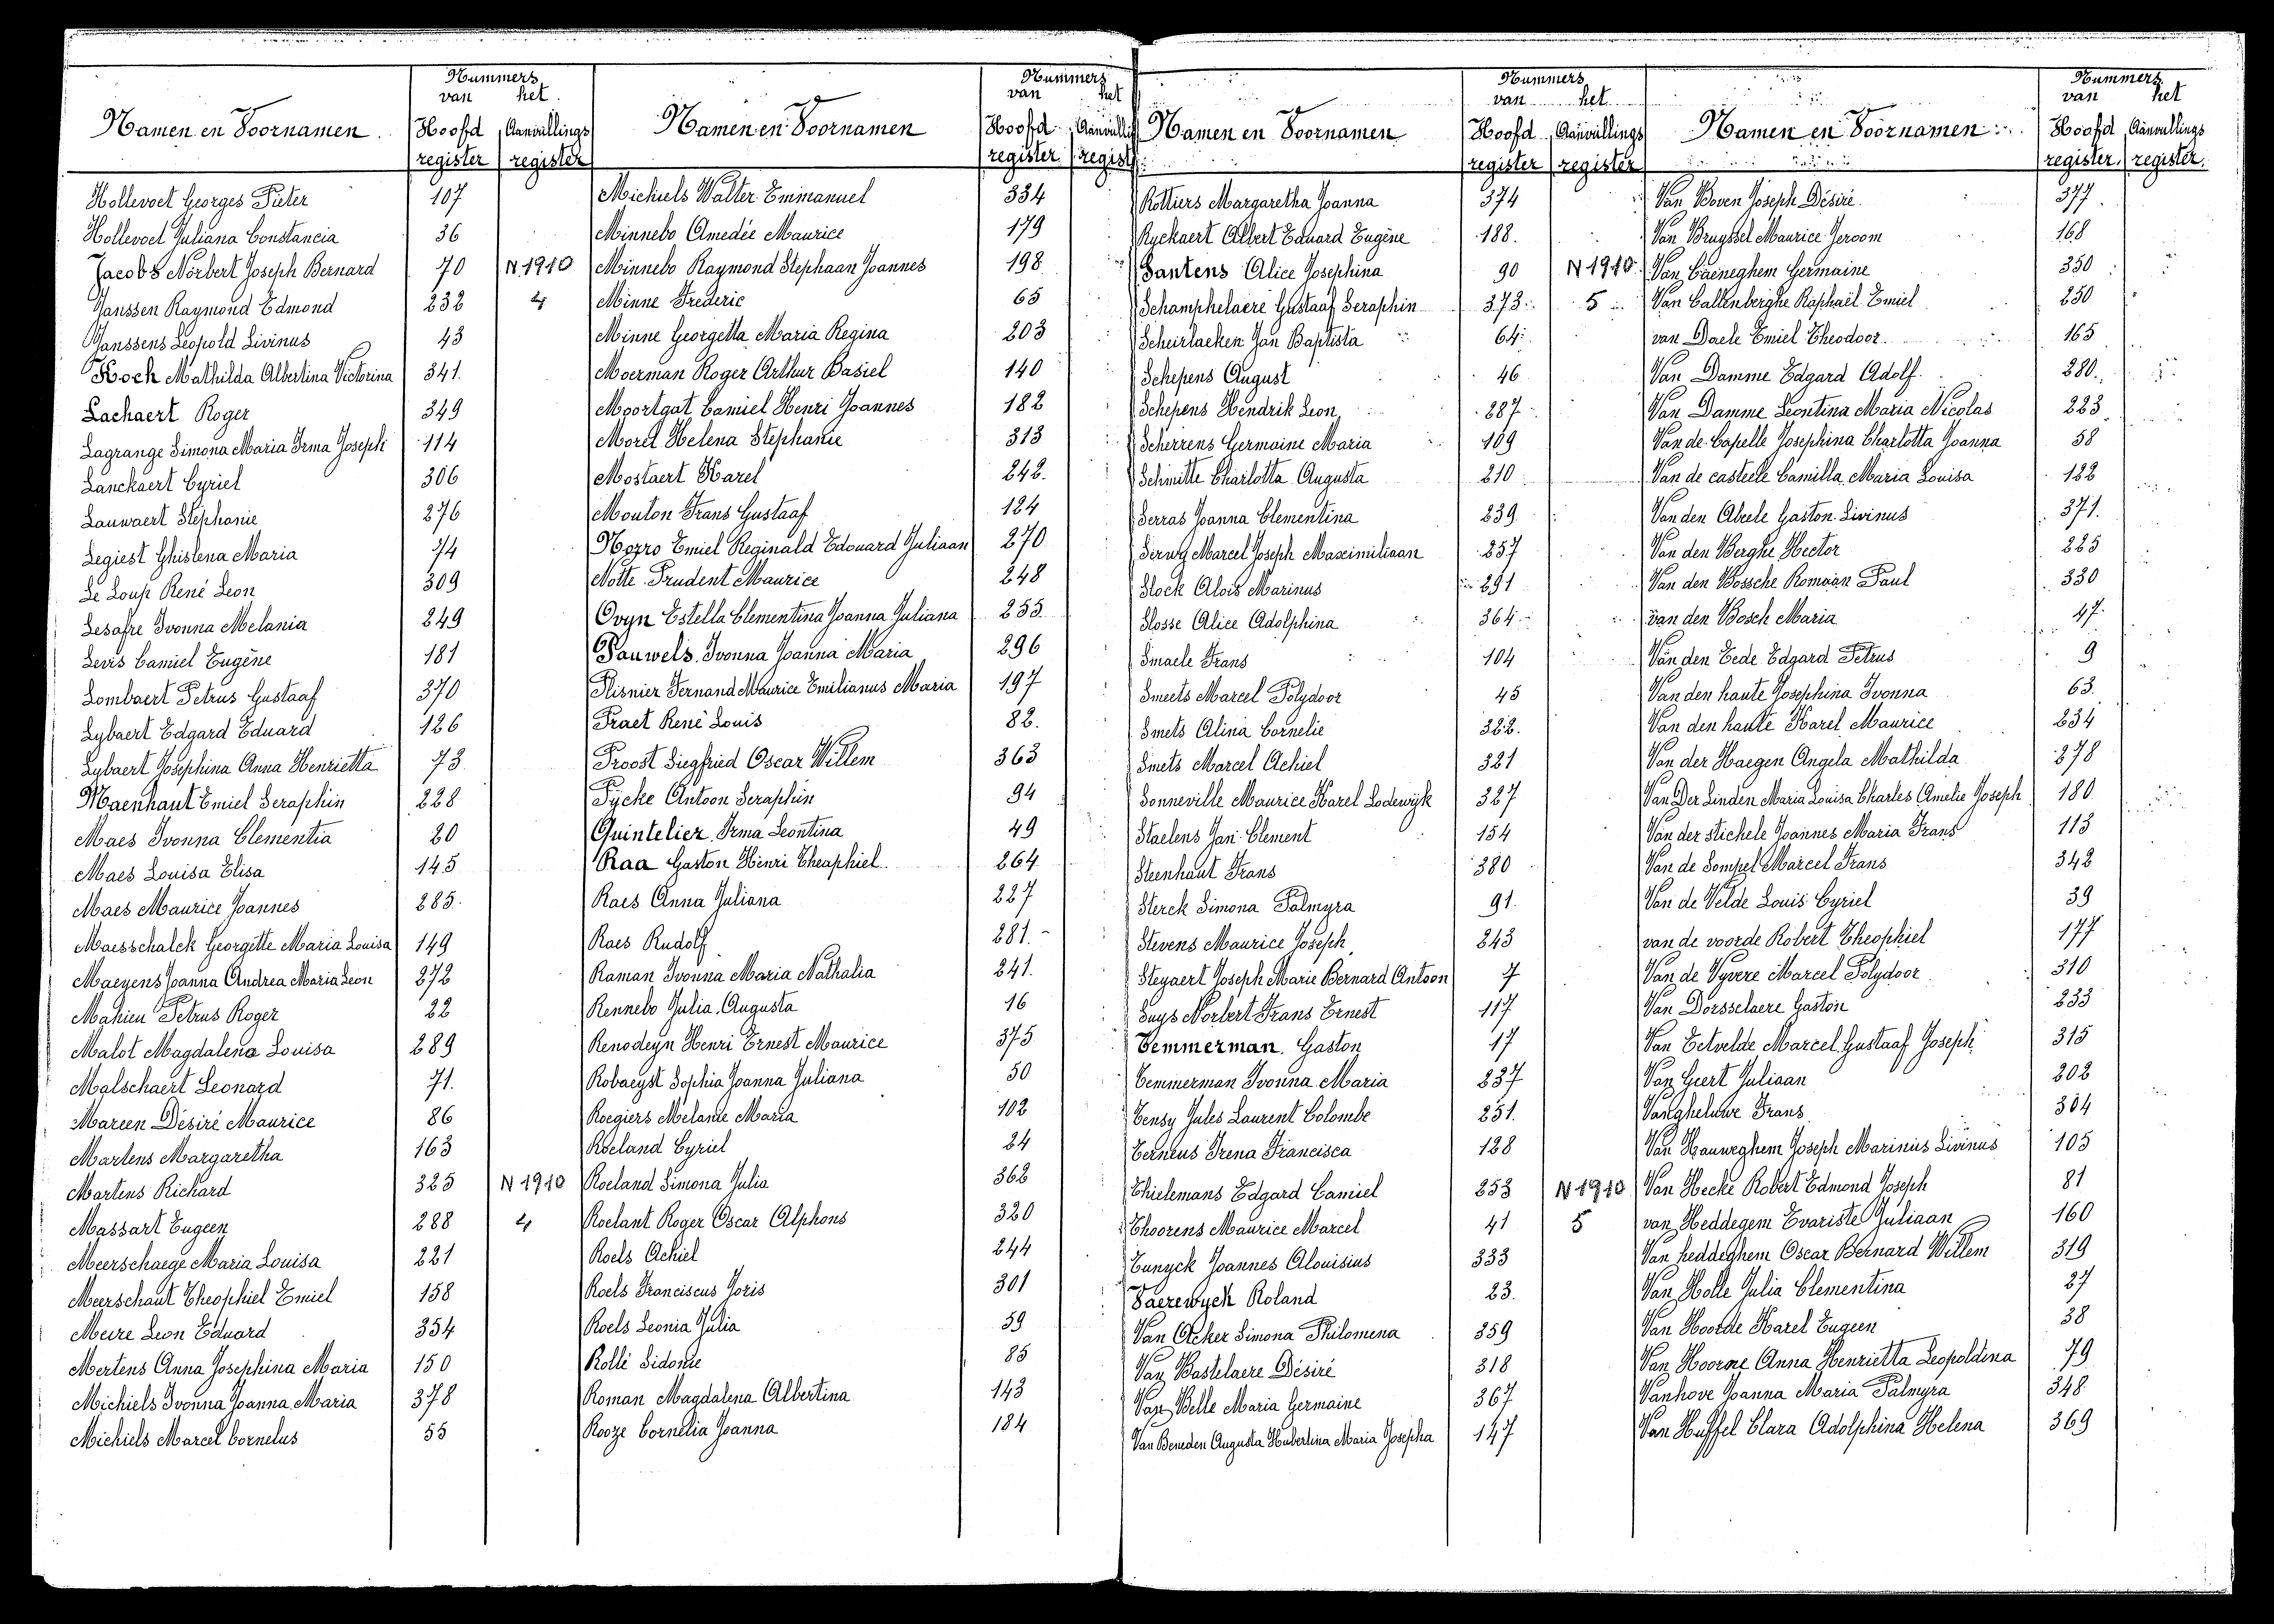 Nummers
van het
Namen en Voornamen Hoofd Aanvullings
register register
Hollevoet Georges Pieter 107
Hollevoet Juliana Constancia 36
Jacobs Norbert Joseph Bernard 70 N 1910
Janssen Raymond Edmond 232 4
Janssens Leopold Livinus 43
Koch Mathilda Albertina Victorina 341
Lachaert Roger 349
Lagrange Simona Maria Irma Joseph 114
Lanckaert Cyriel 306
Lauwaert Stephanie 276
Legiest Ghislena Maria 74
Le Loup René Leon 309
Lesafre Ivonna Melania 249
Levis Camiel Eugène 181
Lombaert Petrus Gustaaf 370
Lybaert Edgard Eduard 126
Lybaert Josephina Anna Henrietta 73
Maenhaut Emiel Seraphin 228
Maes Ivonna Clementia 20
Maes Louisa Elisa 145
Maes Maurice Joannes 285
Maesschalck Georgette Maria Louisa 149
Maeyens Joanna Andrea Maria Leon 272
Mahieu Petrus Roger 22
Malot Magdalena Louisa 289
Malschaert Leonard 71
Mareen Désiré Maurice 86
Martens Margaretha 163
Martens Richard 325 N 1910
Massart Eugeen 288 4
Meerschaege Maria Louisa 221
Meerschaut Theophiel Emiel 158
Meire Leon Eduard 354
Mertens Anna Josephina Maria 150
Michiels Ivonna Joanna Maria 378
Michiels Marcel Cornelus 55
Nummers
van het
Namen en Voornamen Hoofd
register
Michiels Walter Emmanuel 334
Minnebo Amedée Maurice 179
Minnebo Raymond Stephaan Joannes 198
Minne Frederic 65
Minne Georgetta Maria Regina 203
Moerman Roger Arthur Basiel 140
Moortgat Camiel Henri Joannes 182
Morel Helena Stephanie 313
Mostaert Karel 242
Mouton Frans Gustaaf 124
Nozro Emiel Reginald Edouard Juliaan 270
Notte Prudent Maurice 248
Ovyn Estella Clementina Joanna Juliana 255
Pauwels Ivonna Joanna Maria 296
Plisnier Fernand Maurice Emilianus Maria 197
Praet René Louis 82
Proost Siegfried Oscar Willem 363
Pijcke Antoon Seraphin 94
Quintelier Irma Leontina 49
Raa Gaston Henri Theaphiel 264
Raes Anna Juliana 227
Raes Rudolf 281
Raman Ivonna Maria Nathalia 241
Rennebo Julia Augusta 16
Renodeyn Henri Ernest Maurice 375
Robaeyst Sophia Joanna Juliana 50
Roegiers Melanie Maria 102
Roeland Cyriel 24
Roeland Simona Julia 362
Roelant Roger Oscar Alphons 320
Roels Achiel 244
Roels Franciscus Joris 301
Roels Leonia Julia 59
Rollé Sidonie 85
Roman Magdalena Albertina 143
Rooze Cornelia Joanna 184
Nummers
van het
Namen en Voornamen Hoofd Aanvullings
register register
Rottiers Margaretha Joanna 374
Ryckaert Albert Eduard Eugène 188
Santens Alice Josephina 90 N 1910
Schamphelaere Gustaaf Seraphin 373 5
Scheirlaeken Jan Baptista 64
Schepens August 46
Schepens Hendrik Leon 287
Scherrens Germaine Maria 109
Schmitte Charlotta Augusta 210
Serras Joanna Clementina 239
Serwy Marcel Joseph Maximiliaan 257
Slock Alois Marinus 291
Slosse Alice Adolphina 364
Smaele Frans 104
Smeets Marcel Polydoor 45
Smets Alina Cornelie 322
Smets Marcel Achiel 321
Sonneville Maurice Karel Lodewijk 327
Staelens Jan Clement 154
Steenhaut Frans 380
Sterck Simona Palmyra 91
Stevens Maurice Joseph 243
Steyaert Joseph Marie Bernard Antoon 7
Suys Norbert Frans Ernest 117
Temmerman Gaston 17
Temmerman Ivonna Maria 237
Tensy Jules Laurent Colombe 251
Terneus Irena Francisca 128
Thielemans Edgard Camiel 253 N 1910
Thoorens Maurice Marcel 41 5
Tunyck Joannes Alouisius 333
Vaerewyck Roland 23
Van Acker Simona Philomena 359
Van Bastelaere Désiré 318
Van Belle Maria Germaine 367
Van Beneden Augusta Hubertina Maria Josepha 147
Nummers
van het
Namen en Voornamen Hoofd Aanvullings
register register
Van Boven Joseph Désiré 377
Van Bruyssel Maurice Jeroom 168
Van Caeneghem Germaine 350
Van Callenberghe Raphaël Emiel 250
van Daele Emiel Theodoor 165
Van Damme Edgard Adolf 280
Van Damme Leontina Maria Nicolas 223
Van de Capelle Josephina Charlotta Joanna 58
Van de casteele Camilla Maria Louisa 122
Van den Abeele Gaston Livinus 371
Van den Berghe Hector 225
Van den Bossche Romaan Paul 330
van den Bosch Maria 47
Van den Eede Edgard Petrus 9
Van den haute Josephina Ivonna 63
Van den haute Karel Maurice 234
Van der Haegen Angela Mathilda 278
Van Der Linden Maria Louisa Charles Amelie Joseph 180
Van der stichele Joannes Maria Frans 113
Van de Sompel Marcel Frans 342
Van de Velde Louis Cyriel 39
van de voorde Robert Theophiel 177
Van de Vyvere Marcel Polydoor 310
Van Dorsselaere Gaston 233
Van Eetvelde Marcel Gustaaf Joseph 315
Van Geert Juliaan 202
Vangheluwe Frans 304
Van Hauweghem Joseph Marinus Livinus 105
Van Hecke Robert Edmond Joseph 81
van Heddegem Evariste Juliaan 160
Van heddeghem Oscar Bernard Willem 319
Van Holle Julia Clementina 27
Van Hoorde Karel Eugeen 38
Van Hoorne Anna Henrietta Leopoldina 79
Vanhove Joanna Maria Palmyra 348
Van Huffel Clara Adolphina Helena 369